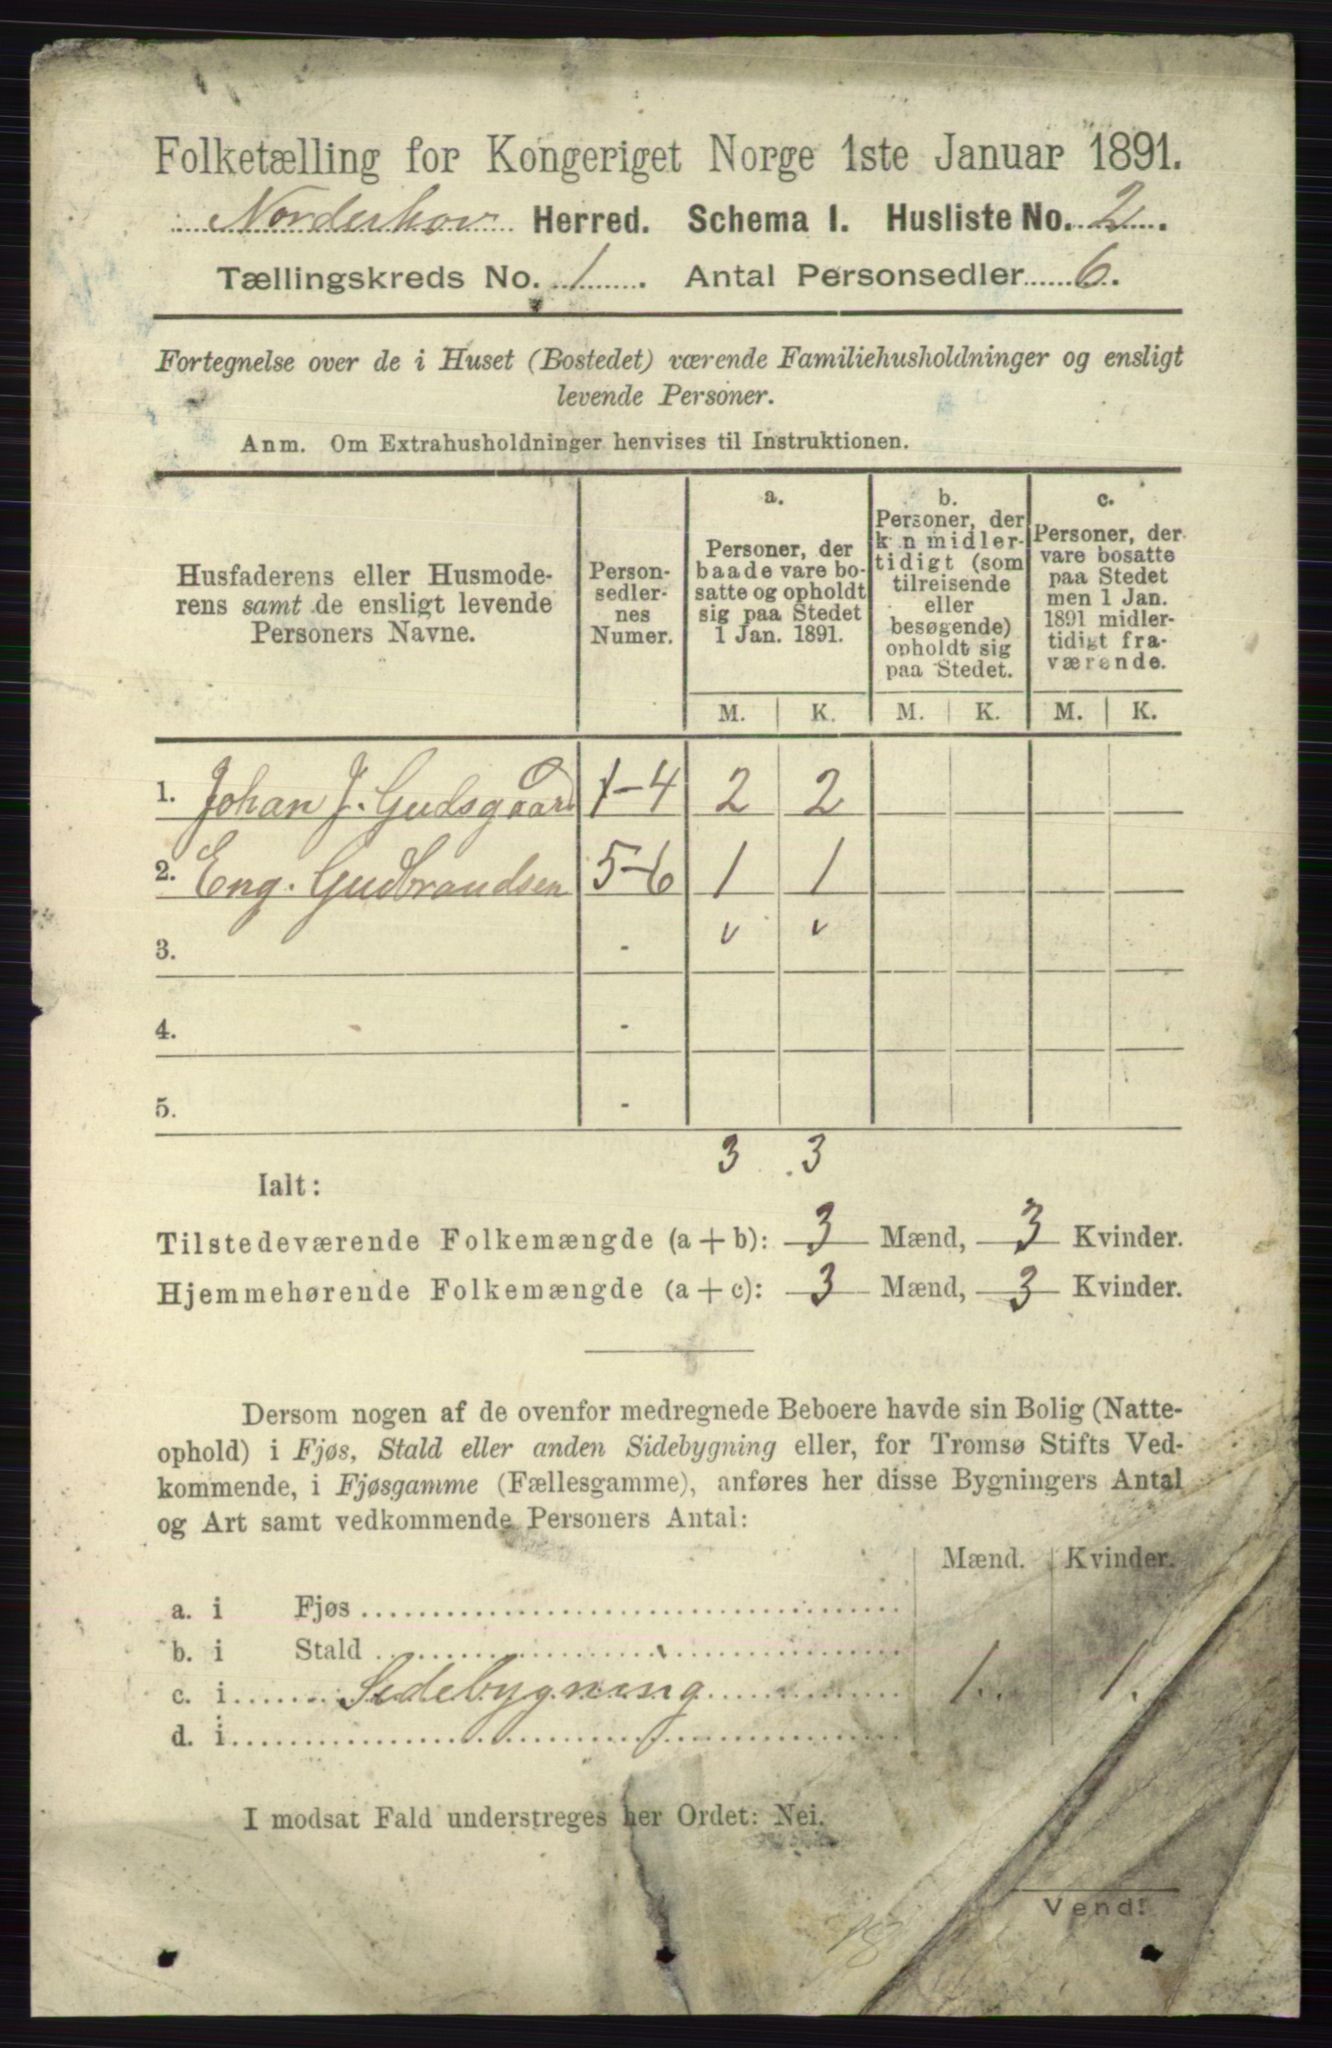 Folketælling for Kongeriget Norge 1ste Januar 1891.
Norderhov Herred. Schema I. Husliste No. 2.
Tællingskreds No. 1. Antal Personsedler 6.
Fortegnelse over de i Huset (Bostedet) værende Familiehusholdninger og ensligt
levende Personer.
Anm. Om Extrahusholdninger henvises til Instruktionen.
Husfaderens eller Husmode-
rens samt de ensligt levende
Personers Navne.
Person-
sedler-
nes
Numer.
a.
Personer, der
baade vare bo-
satte og opholdt
sig paa Stedet
1 Jan. 1891.
b.
Personer, der
kun midler-
tidigt (som
tilreisende
eller
besøgende)
opholdt sig
paa Stedet.
c.
Personer, der
vare bosatte
paa Stedet
men 1 Jan.
1891 midler-
tidigt fra-
værende.
M. K. M. K. M. K.
1. Johan J. Gudsgaard 1-4 2 2
2. Eng. Gudbrandsen 5-6 1 1
3. -
4. -
5. -
3 3
Ialt:
Tilstedeværende Folkemængde (a + b): 3 Mænd, 3 Kvinder.
Hjemmehørende Folkemængde (a + c): 3 Mænd, 3 Kvinder.
Dersom nogen af de ovenfor medregnede Beboere havde sin Bolig (Natte-
ophold) i Fjøs, Stald eller anden Sidebygning eller, for Tromsø Stifts Ved-
kommende, i Fjøsgamme (Fællesgamme), anføres her disse Bygningers Antal
og Art samt vedkommende Personers Antal:
Mænd. Kvinder.
a. i Fjøs
b. i Stald
c. i Sidebygning 1. 1.
d. i
I modsat Fald understreges her Ordet: Nei.
Vend!